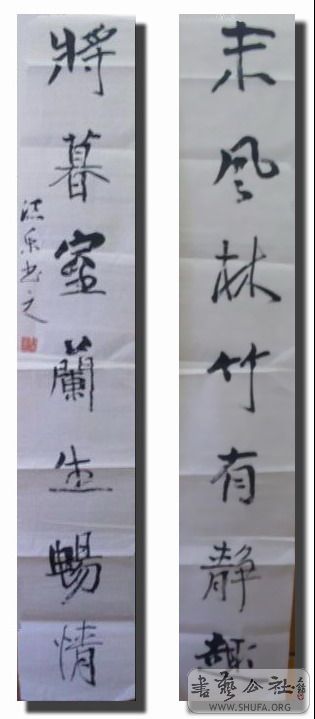 未风林竹有静趣
將暮室蘭生暢情
书之
書藝公社
WWW.SHUFA.ORG